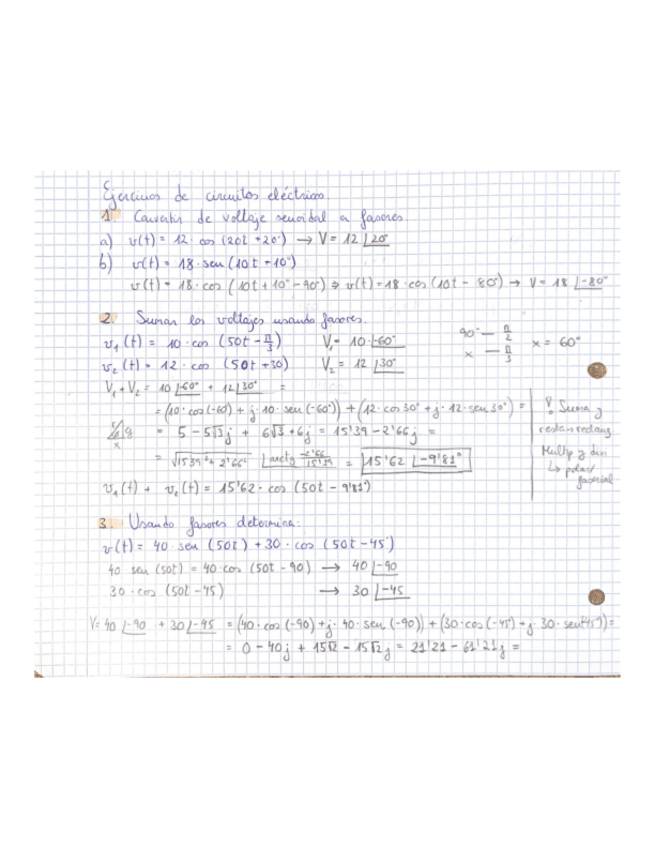 Ejercicios de circuitos eléctricos.
1. Convertir de voltaje senoidal a fasores.
a) v(t) = 12 · cos (20t + 20°) → V = 12 ∠20°
b) v(t) = 18 · sen (10t + 10°)
v(t) = 18 · cos (10t + 10° - 90°) ⇒ v(t) = 18 · cos (10t - 80°) → V = 18 ∠-80°
2. Sumar los voltajes usando fasores.
v₁(t) = 10 · cos (50t - π/3) V₁ = 10 · ∠-60°
90° — π/2
x — π/3 x = 60°
v₂(t) = 12 · cos (50t + 30) V₂ = 12 ∠30°
V₁ + V₂ = 10 ∠-60° + 12 ∠30° =
= (10 · cos (-60) + j · 10 · sen (-60°)) + (12 · cos 30° + j · 12 · sen 30°) =
= 5 - 5√3 j + 6√3 + 6j = 15'39 - 2'66j =
= √15'39² + 2'66² ∠arctg -2'66/15'39 = 15'62 ∠-9'81°
v₁(t) + v₂(t) = 15'62 · cos (50t - 9'81°)
Suma y
resta → rectang
Multip y divi
↳ polar/
fasorial
3. Usando fasores determina:
v(t) = 40 · sen (50t) + 30 · cos (50t - 45°)
40 sen (50t) = 40 · cos (50t - 90) → 40 ∠-90
30 · cos (50t - 45) → 30 ∠-45
V = 40 ∠-90 + 30 ∠-45 = (40 · cos (-90) + j · 40 · sen (-90)) + (30 · cos (-45°) + j · 30 · sen(-45°)) =
= 0 - 40j + 15√2 - 15√2 j = 21'21 - 61'21j =